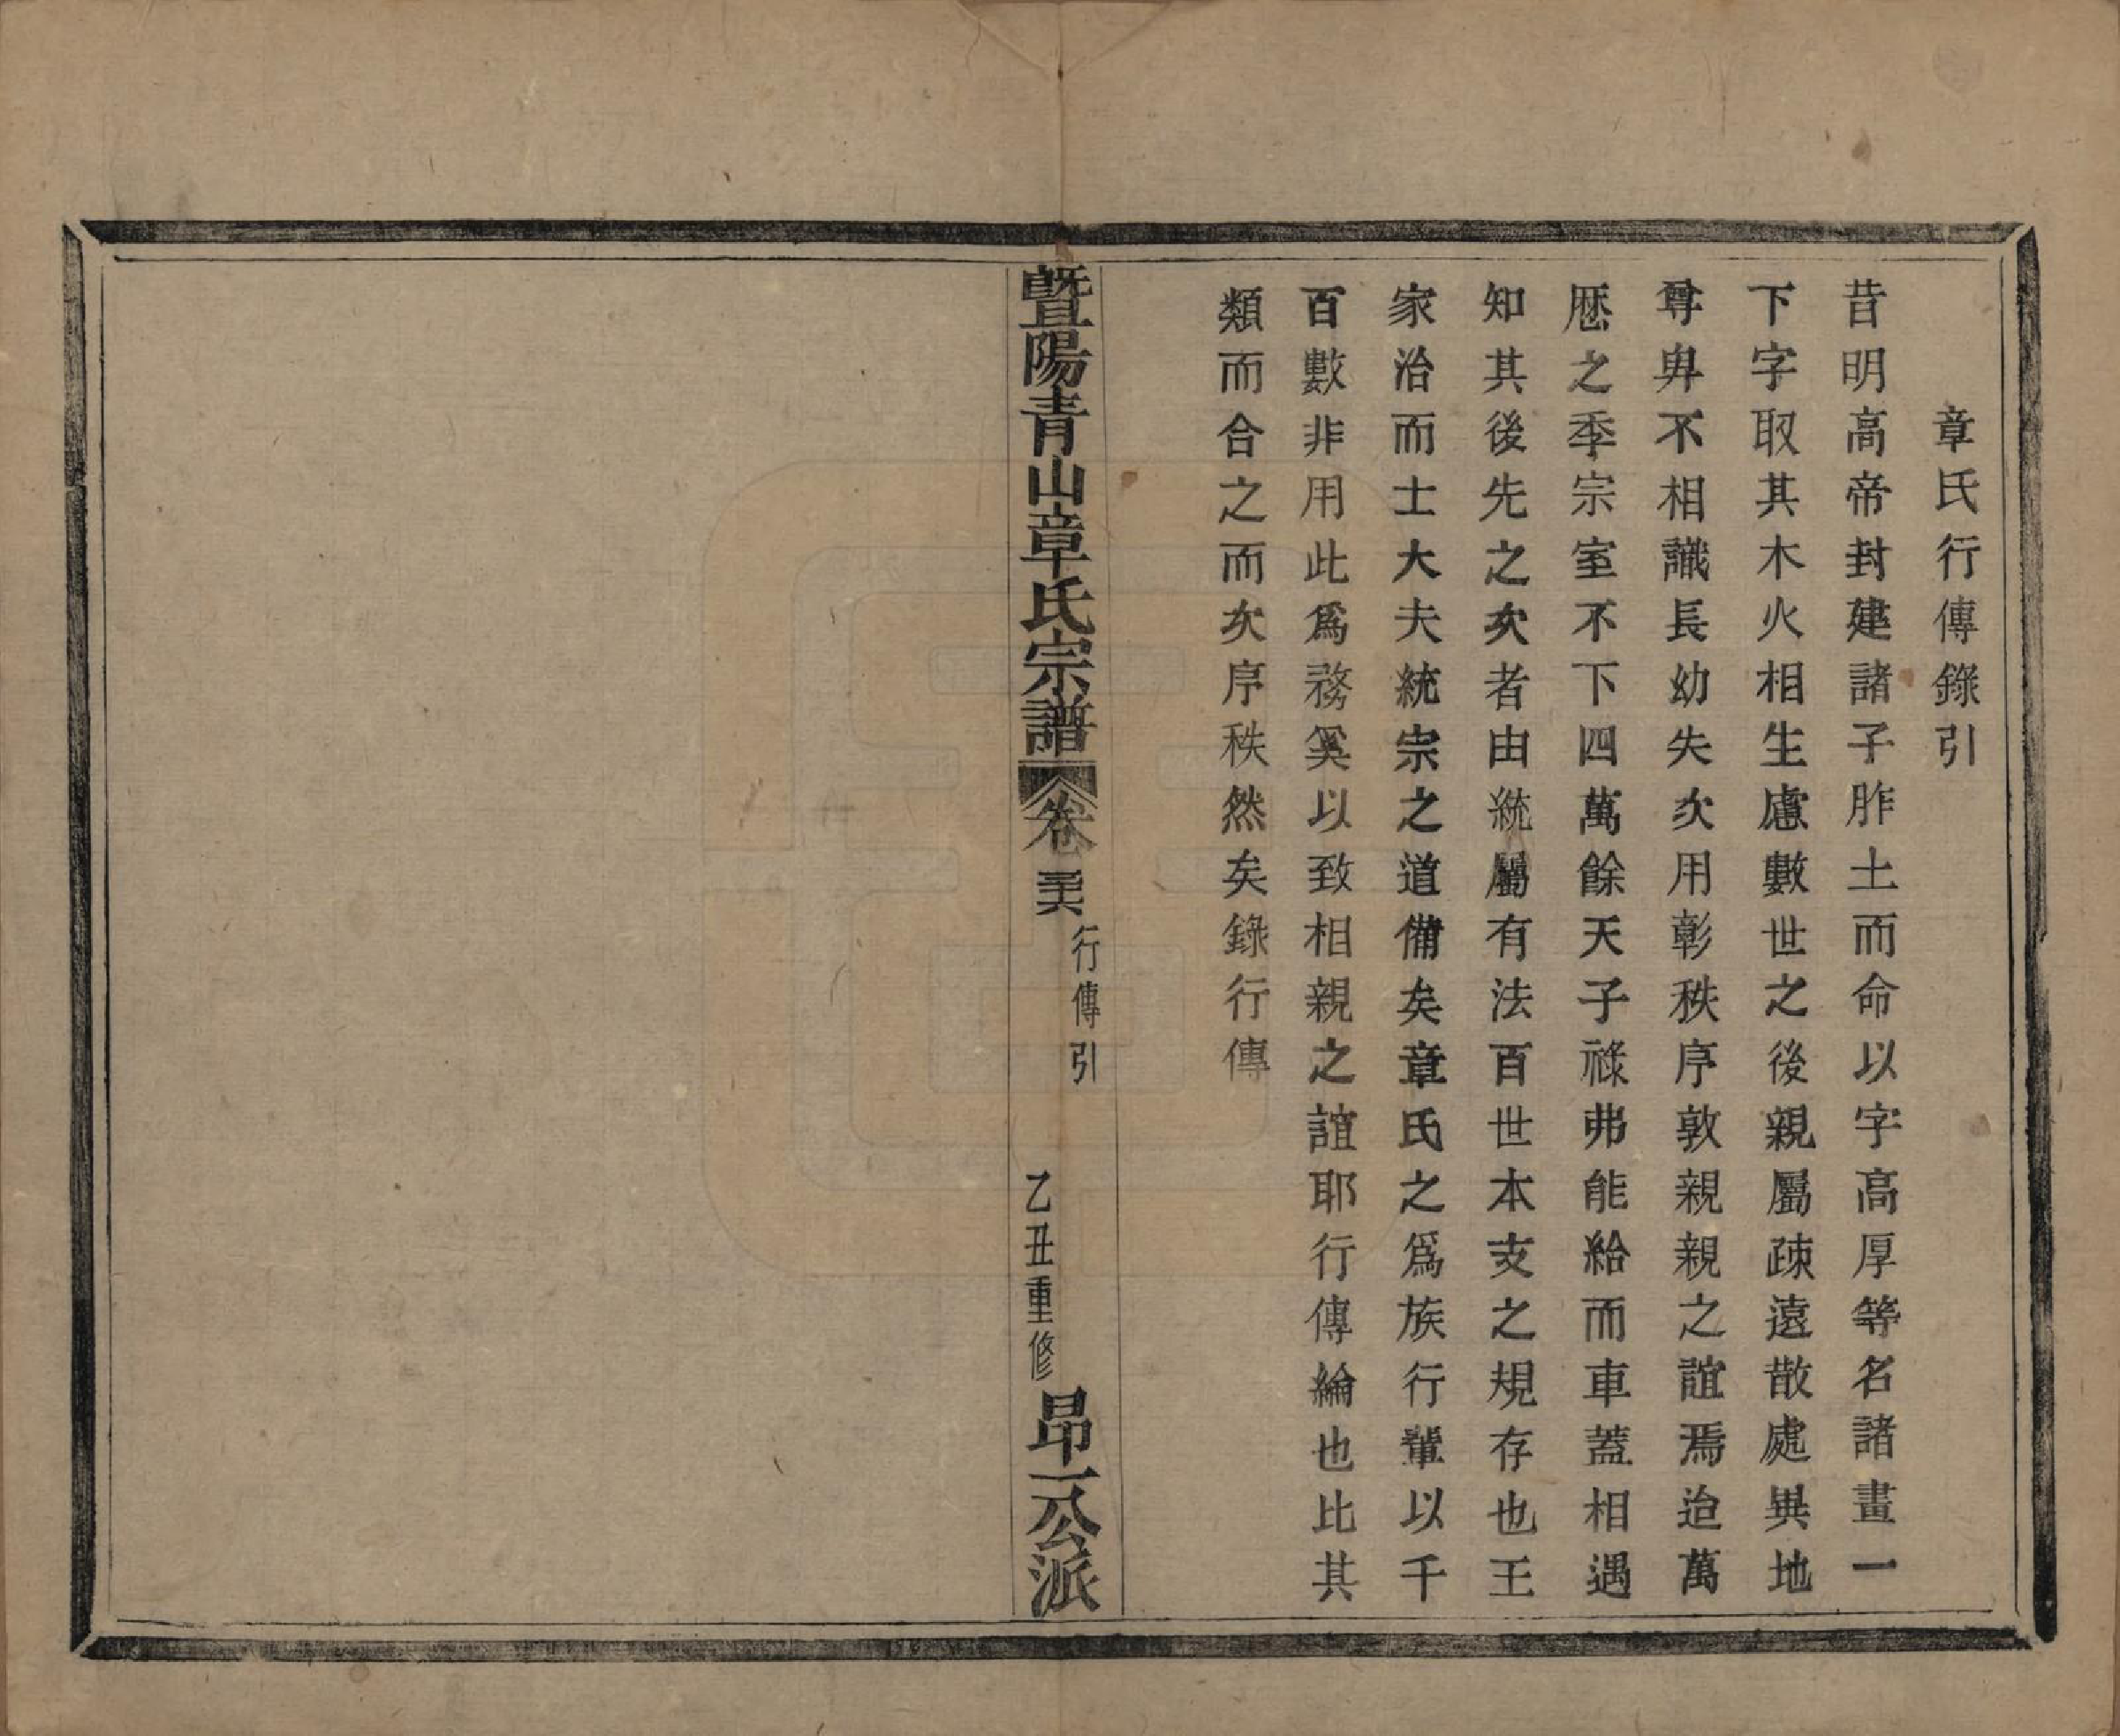 章氏行傳錄引
昔明高帝封建諸子胙土而命以字高厚等名諸畫一
下字取其木火相生慮數世之後親屬疎遠散處異地
尊卑不相識長幼失次用彰秩序敦親親之誼焉迨萬
厯之季宗室不下四萬餘天子祿弗能給而車蓋相遇
知其後先之次者由統屬有法百世本支之規存也王
家治而士大夫統宗之道備矣章氏之爲族行輩以千
百數非用此爲務奚以致相親之誼耶行傳綸也比其
類而合之而次序秩然矣錄行傳
暨陽青山章氏宗譜 卷 行傳引 乙丑重修 昂一公派